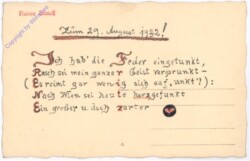 Zum 29. August 1932!
Ich hab' die Feder eingetunkt,
Rasch sei mein ganzer Geist verprunkt -
(Es reimt gar wenig sich auf „unkt"!):
Nach Wien sei heute hergefunkt
Ein großer u. doch zarter